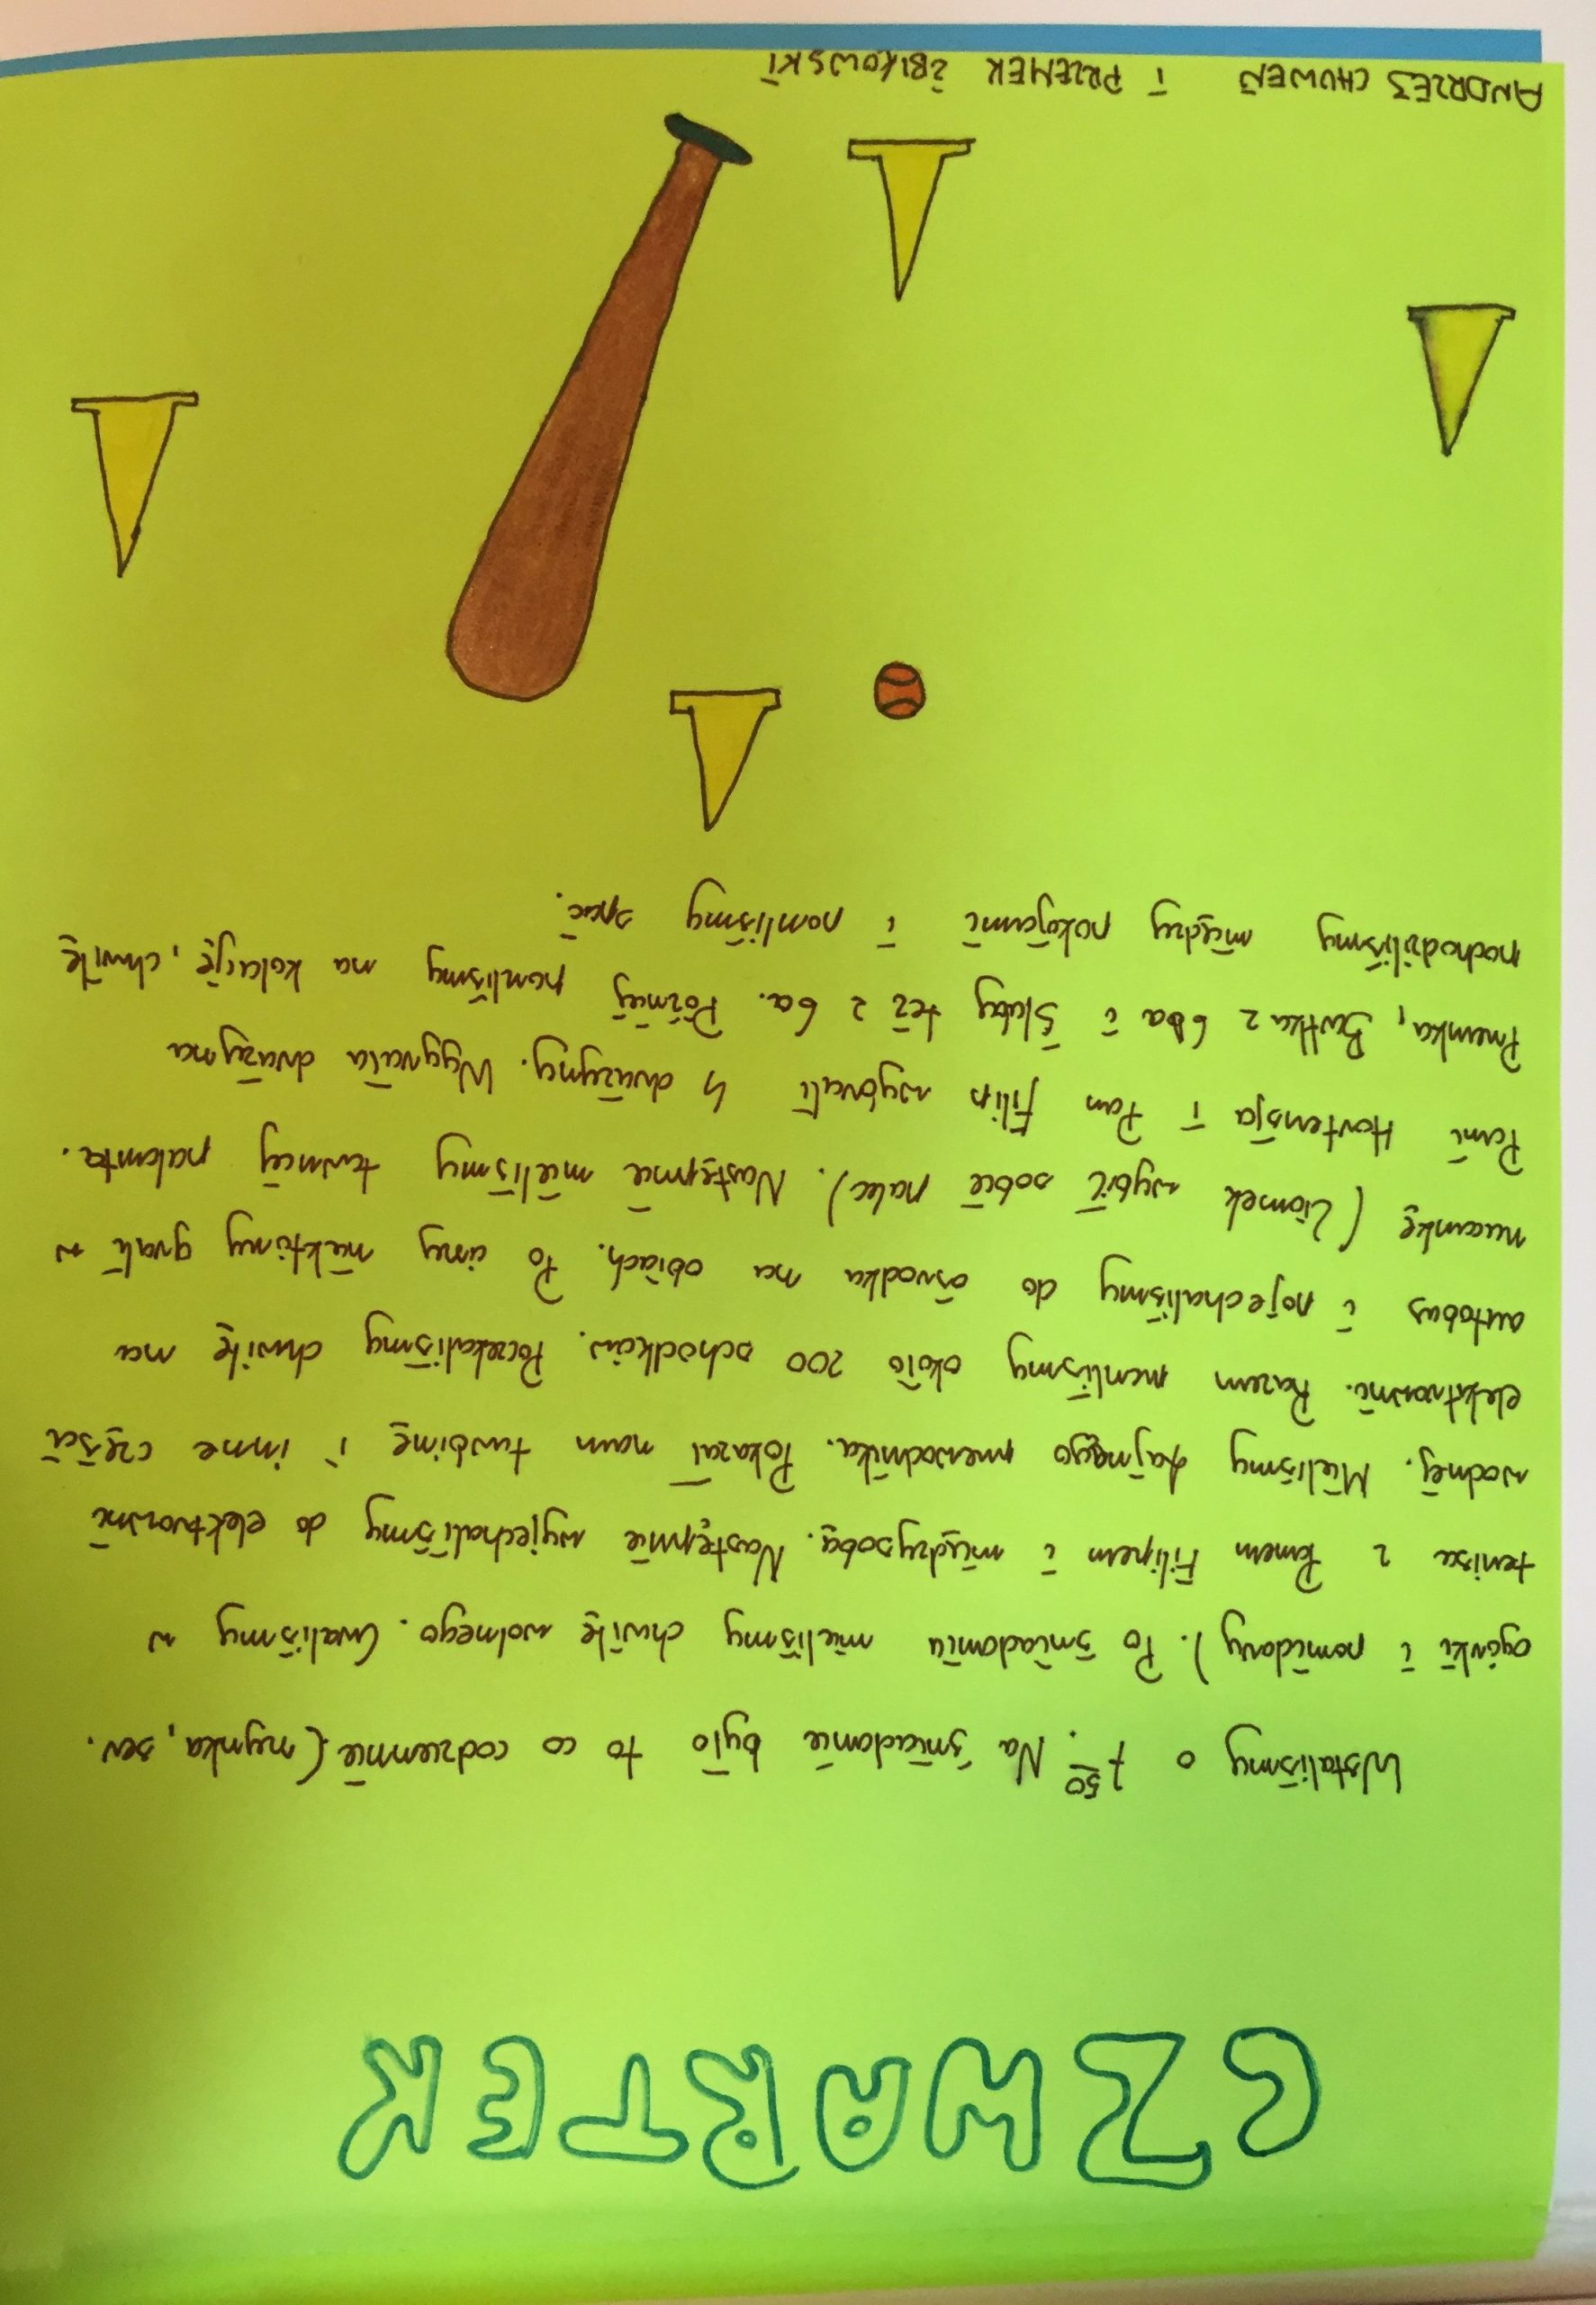 CZWARTEK
Wstaliśmy o 7 50. Na śniadanie było to co codziennie (szynka, ser,
ogórki i pomidory). Po śniadaniu mieliśmy chwilę wolnego. Graliśmy w
tenisa z Panem Filipem i międzysobą. Następnie wyjechaliśmy do elektrowni
wodnej. Mieliśmy fajnego przewodnika. Pokazał nam turbinę i inne części
elektrowni. Razem przeszliśmy około 200 schodków. Poczekaliśmy chwilę na
autobus i pojechaliśmy do ośrodka na obiad. Po ciszy niektórzy grali w
nurankę (Ziomek wybił sobie palec). Następnie mieliśmy turniej palanta.
Pani Hortensja i Pan Filip wybrali 4 drużyny. Wygrała drużyna
Przemka, Bartka z 6a i Sluby też z 6a. Później poszliśmy na kolację, chwilę
pochodziliśmy między pokojami i poszliśmy spać.
ANDRZEJ CHUWEŃ i PRZEMEK ŻBIKOWSKI